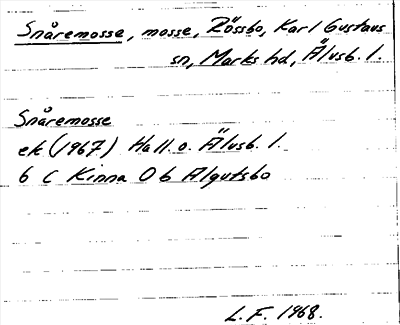 Snåremosse, mosse, Rössbo, Karl Gustavs
sn, Marks hd, Älvsb. l.
Snåremosse
ek. (1967) Hall. o. Älvsb. l.
6 C Kinna 0 b Algutsbo
L. F. 1968.